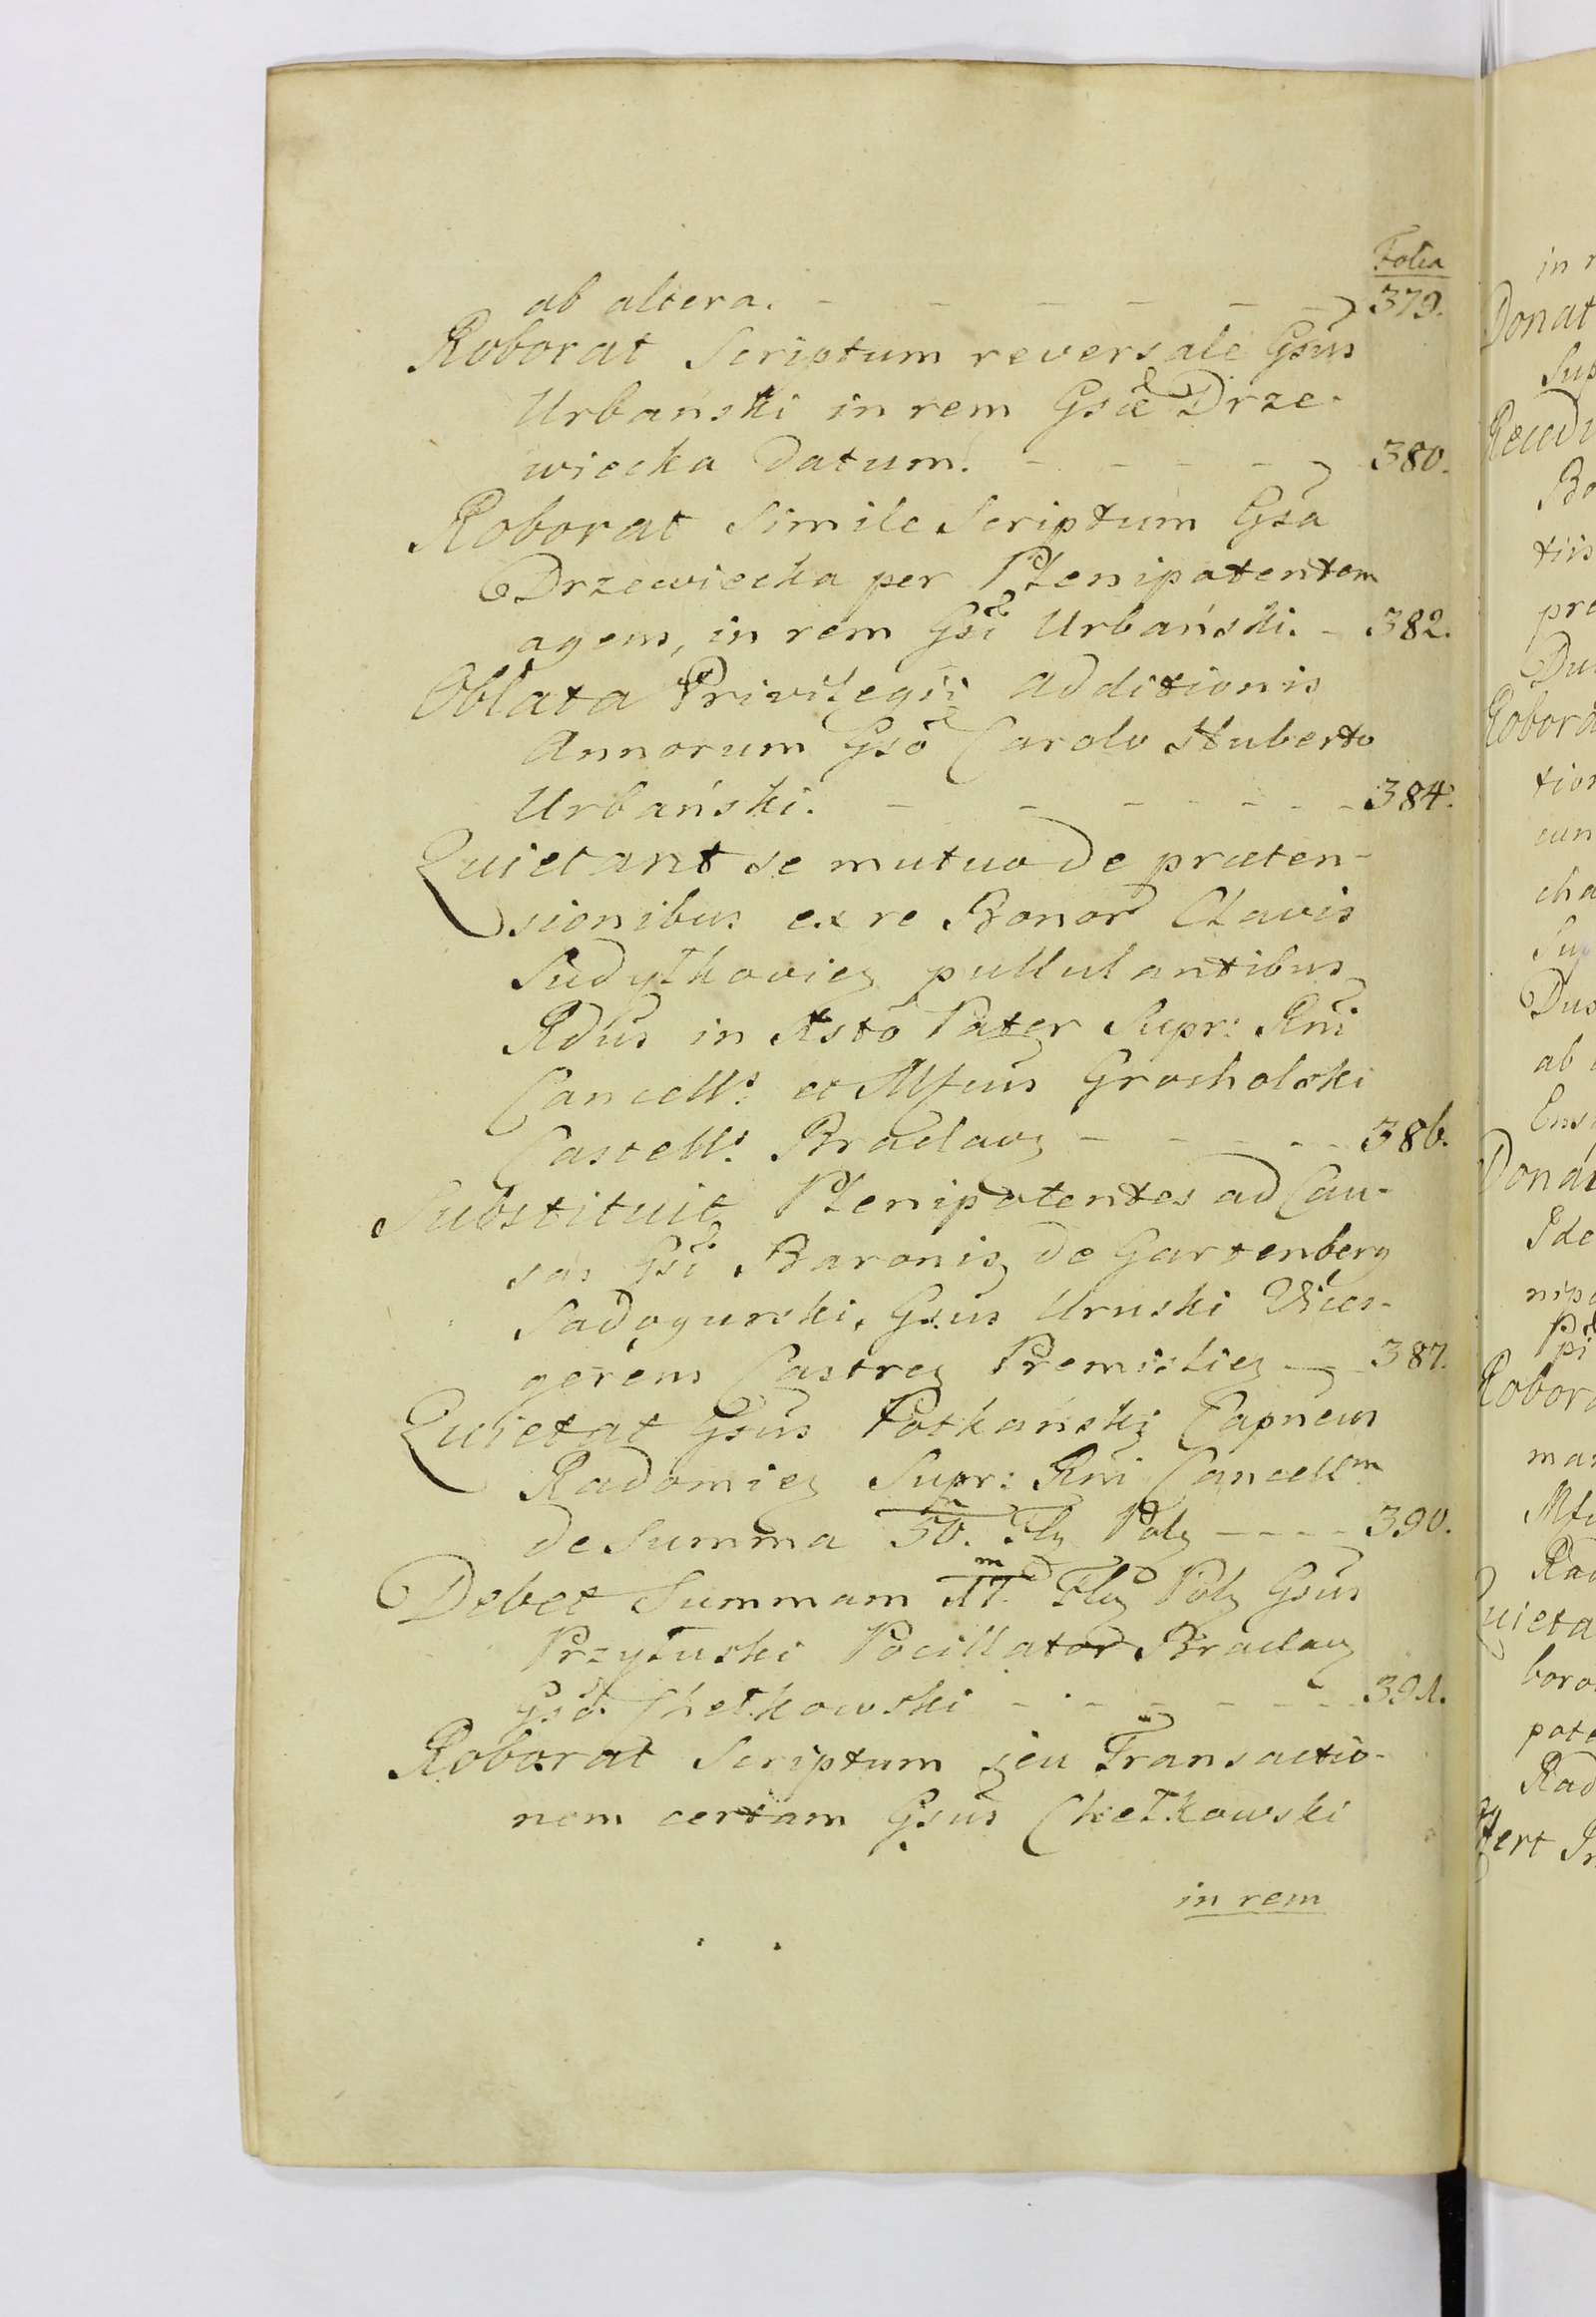 Folia
ab altera. - - - - - - 379.
Roborat Scriptum reversale Gsus
Urbański in rem Gsæ Drze-
wiecka datum. - - - - - 380.
Roborat simile Scriptum Gsa
Drzewiecka per Plenipotentem
agens, in rem Gsi Urbański. - 382.
Oblata Privilegii additionis
Annorum Gso Carolo Huberto
Urbański. - - - - - - - 384.
Quietant se mutuo de præten-
sionibus ex re Bonor Clavis
Sudylkovien pullulantibus
Rdus in Xsto Pater Supr: Rni
Cancells et Mfcus Grocholski
Castells Braclavn - - - - - 386.
Substituit Plenipotentes ad Cau-
sas Gsi Baronis de Gartenberg
Sadogurski, Gsus Uruski Vices-
gerens Castren Premislien - 387.
Quietat Gsus Potkański Capneus
Radomien Supr: Rni Cancellm
de Summa 50.m Fln Poln - - - - 390.
Debet Summam 17.m Fln Poln Gsus
Przyłuski Pocillator Braclavn
Gso Chełkowski - - - - - - 391.
Roborat Scriptum seu Transactio-
nem certam Gsus Chełkowski
in rem
in
Donat
Sup
Bo
tiis
Robora
tion
cha
Dus
ab
nipo
Robora
mar
Quieta
borat
pote
Rad